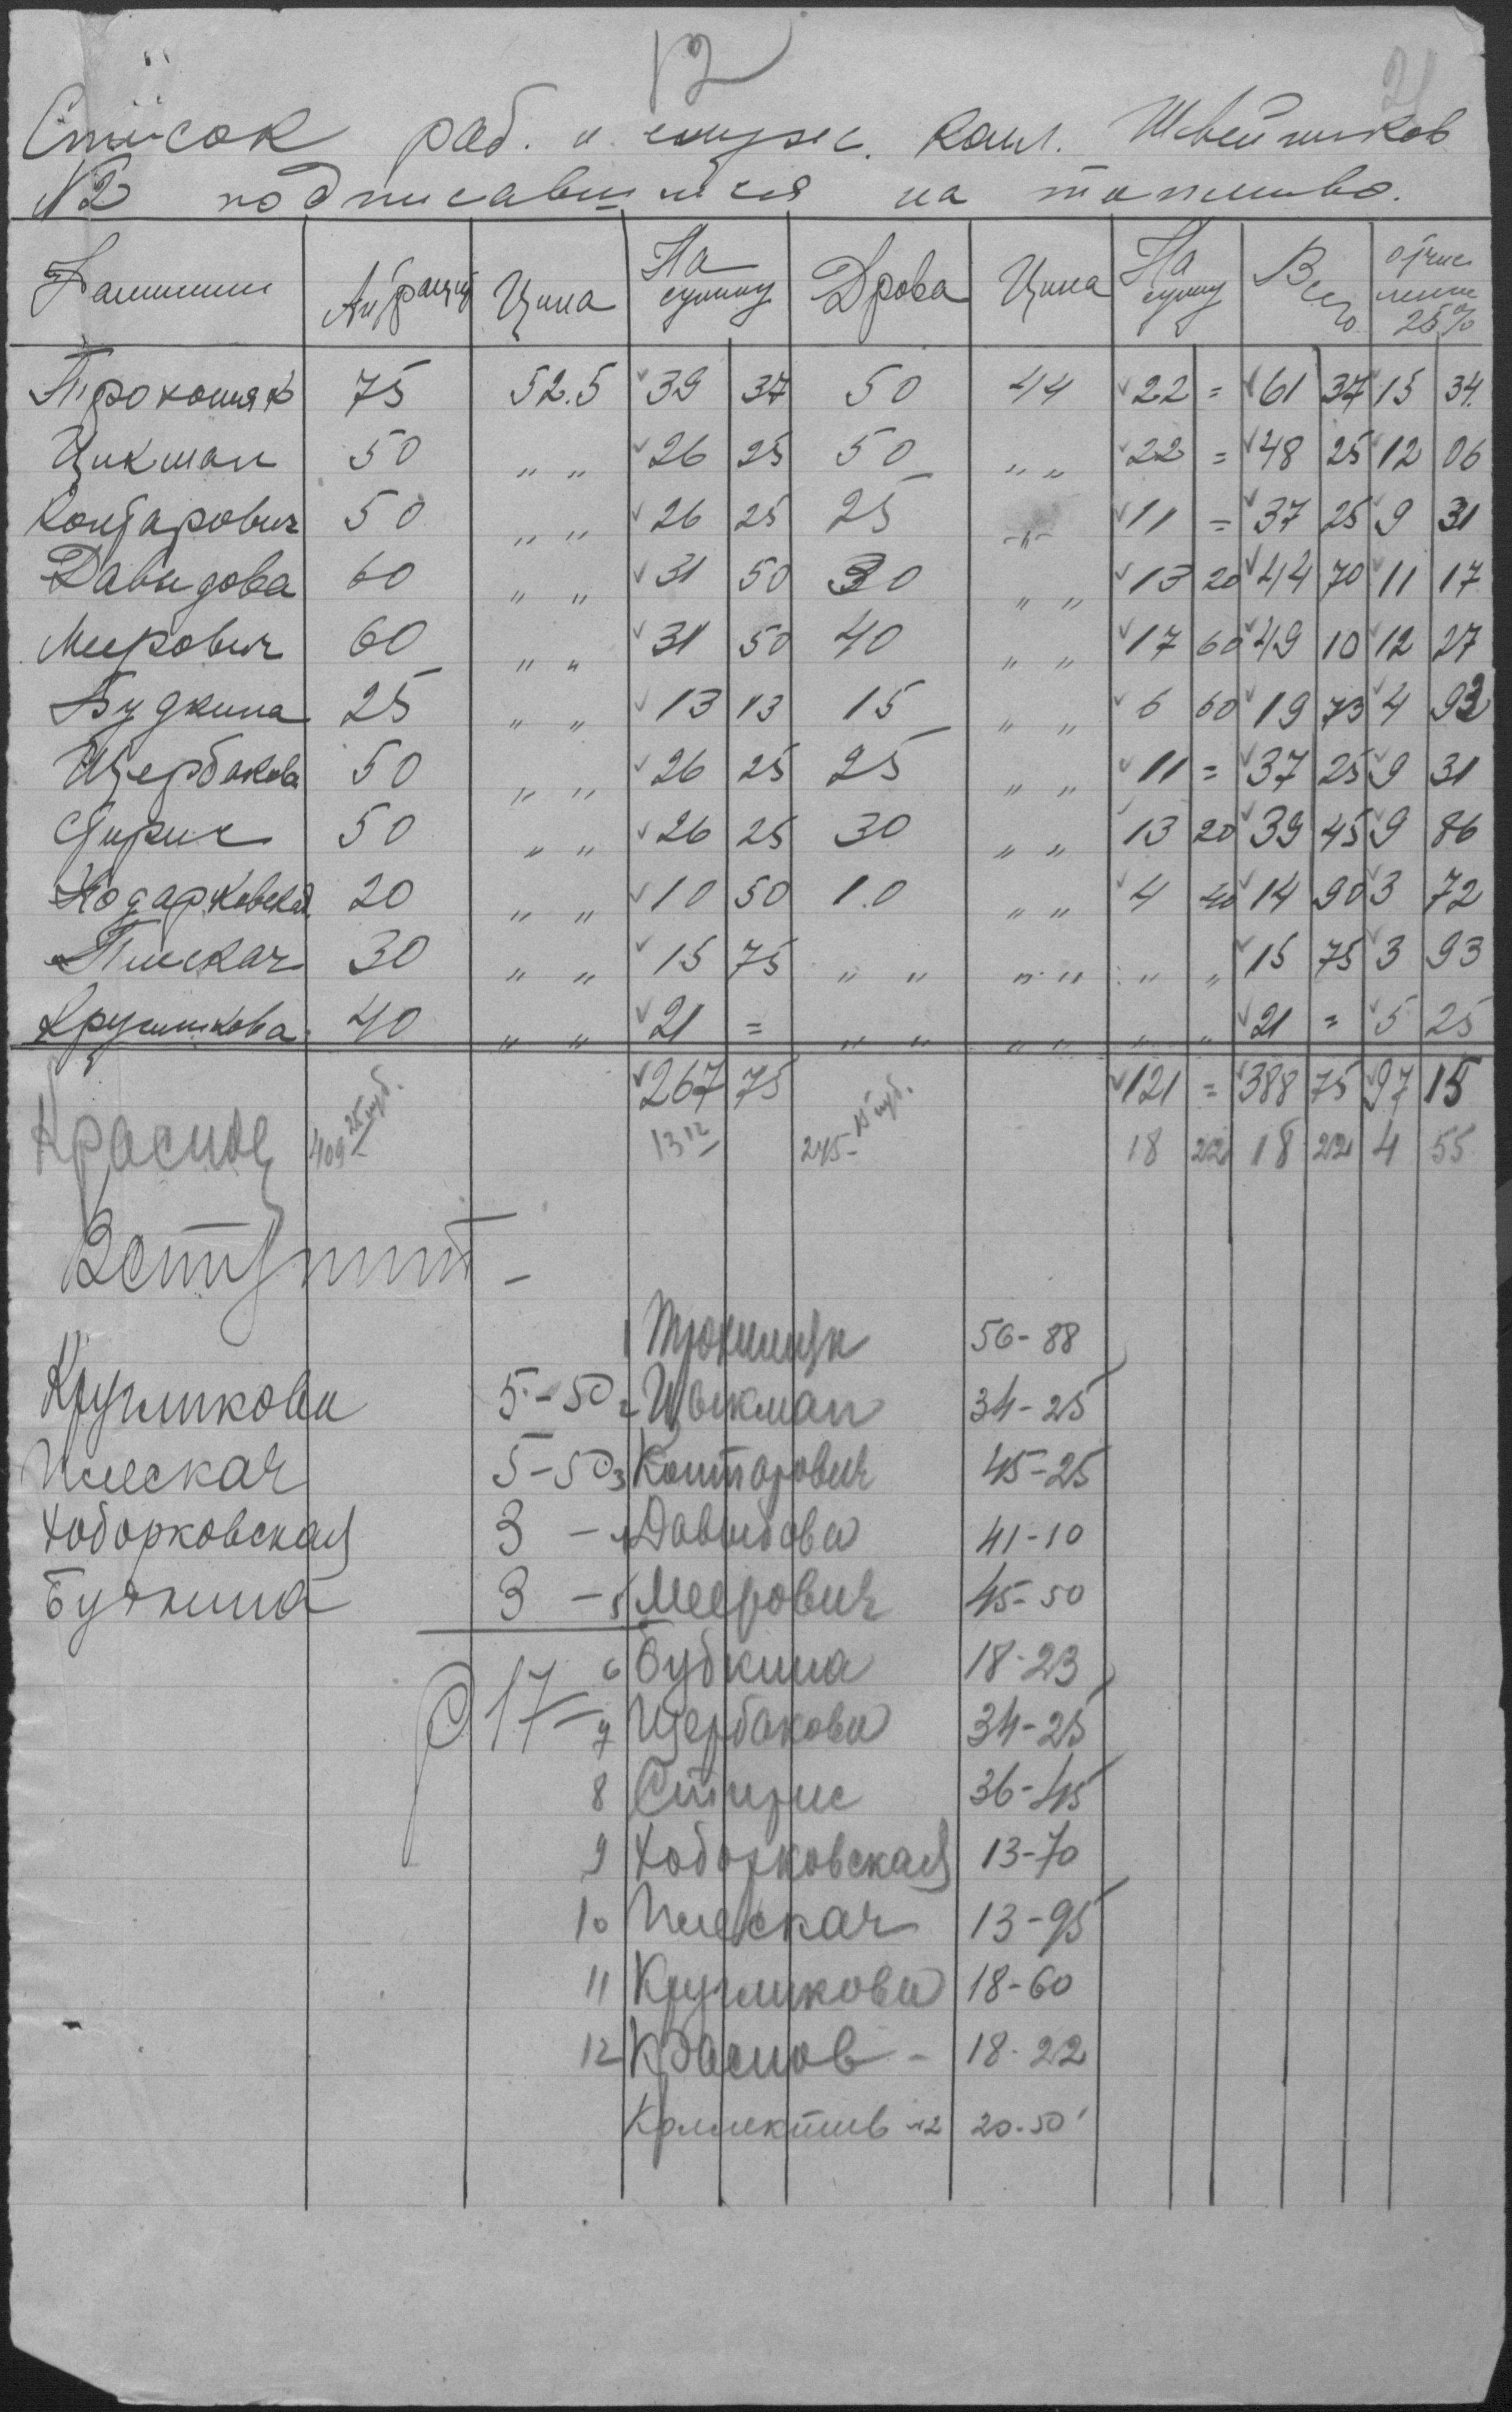 12
21
Список раб. и служ. кол. Швейников
№2 подписавшихся на топливо.
Фамилии Антрацит Цина На сумму Дрова Цина На сумму Всего отчисление 25%
75 52.5 39 37 50 44 22 = 61 37 15 34.
Цикман 50 " " 26 25 50 " " 22 = 48 25 12 06
Контарович 50 " " 26 25 25 -"- 11 = 37 25 9 31
Давидова 60 " " 31 50 30 " " 13 20 44 70 11 17
Меерович 60 " " 31 50 40 " " 17 60 49 10 12 27
Будкина 25 " " 13 13 15 " " 6 60 19 73 4 93
Щербакова 50 " " 26 25 25 " " 11 = 37 25 9 31
Стирис 50 " " 26 25 30 " " 13 20 39 45 9 86
Ходарковская 20 " " 10 50 10 " " 4 40 14 90 3 72
Плискач 30 " " 15 75 " " " " " " 15 75 3 93
Кругликова 40 " " 21 = " " " " " " 21 = 5 25
267 75 121 = 388 75 97 15
Краснов 409 25 пуд. 13 12 245 15 пуд. 18 22 18 22 4 55
1 56-88
Кругликова 5-50 2 Цыкман 34-25
Плескач 5-50 3 Контарович 45-25
Ходорковская 3 - 4 Давыдова 41-10
Будкина 3 - 5 Меерович 45-50
17- 6 Будкина 18-23
7 Щербакова 34-25
8 Стирис 36-45
9 Ходорковская 13-70
10 Плескач 13-95
11 Кругликова 18-60
12 Краснов - 18-22
Коллектив №2 20-50